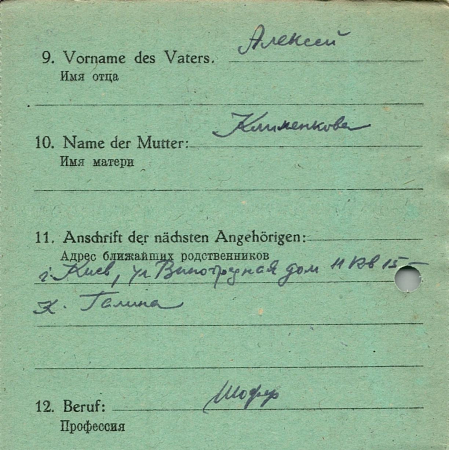 9. Vorname des Vaters. Алексей
Имя отца
10. Name der Mutter: Клименкова
Имя матери
11. Anschrift der nächsten Angehörigen:
Адрес ближайших родственников
г. Киев, ул Виноградная дом 11 кв 15
К. Галина
12. Beruf: Шофер
Профессия